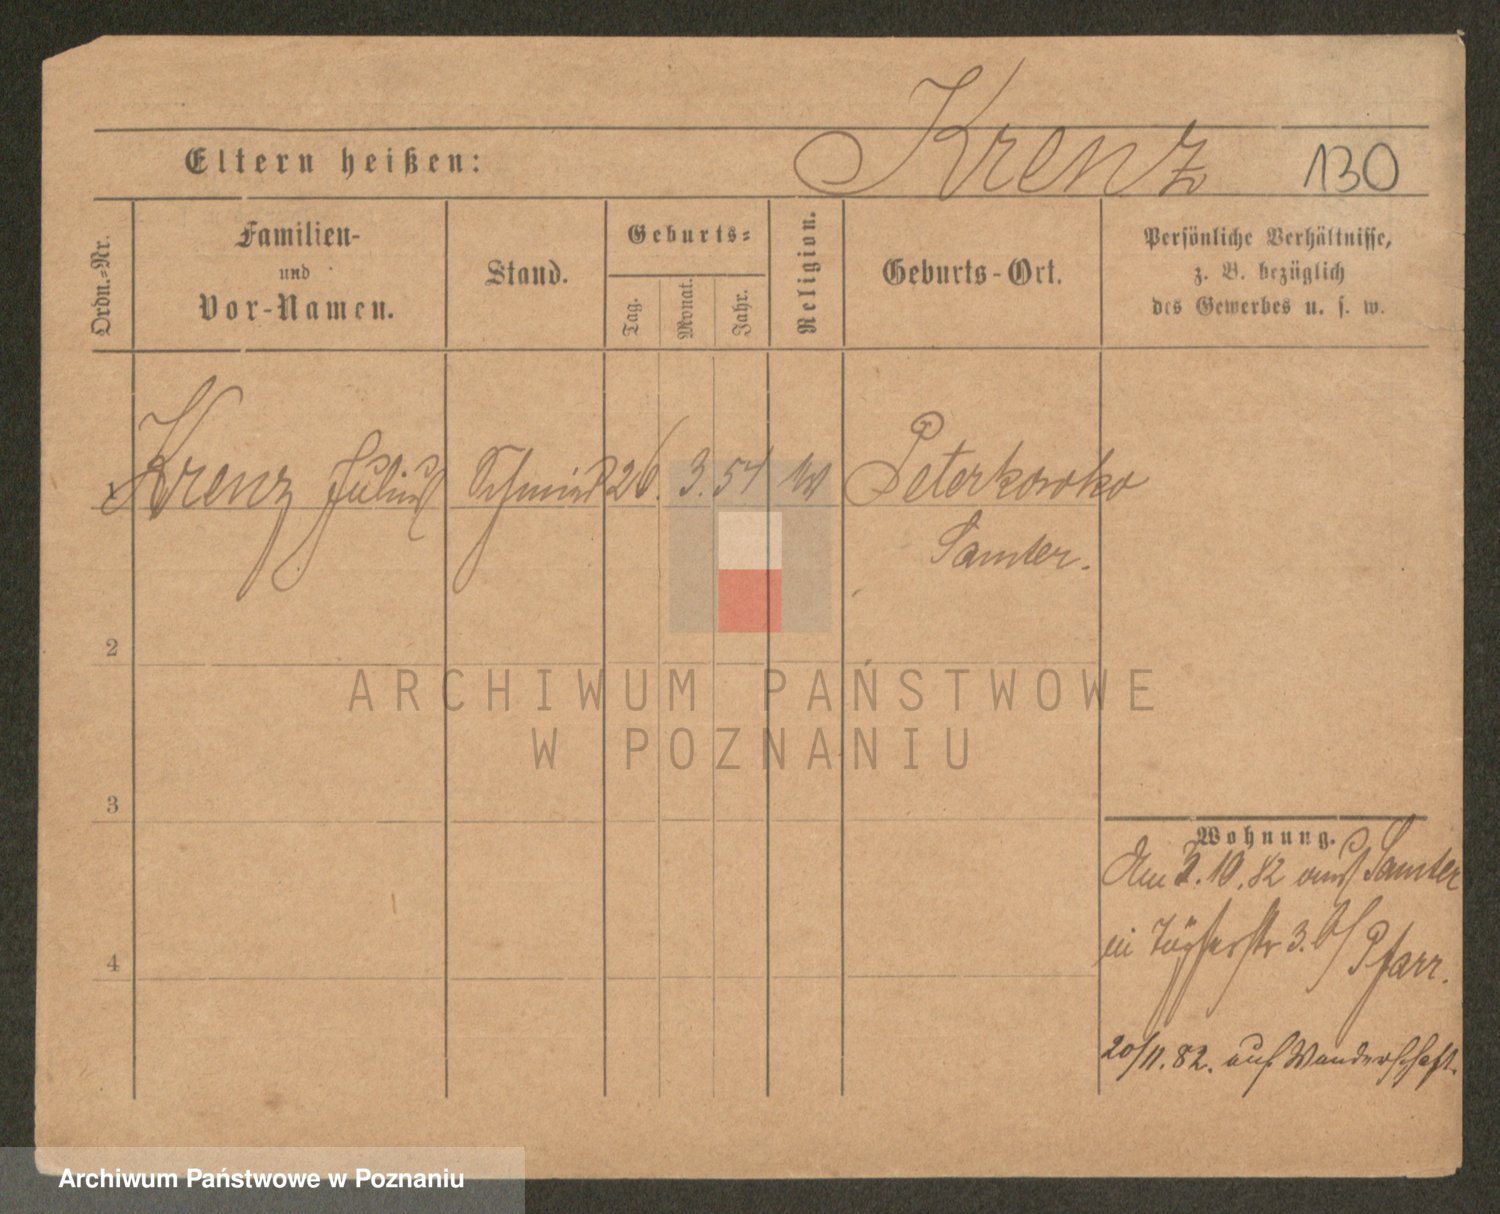 Krenz 130
Eltern heißen:
Ordn.-Nr.
Familien-
und
Vor-Namen.
Stand.
Geburts-
Tag.
Monat.
Jahr.
Religion.
Geburts-Ort.
Persönliche Verhältnisse,
z. B. bezüglich
des Gewerbes u. s. w.
1 Krenz Julius Schmied 26. 3. 54 Peterkowko
Samter.
2
3
4
Wohnung.
Am 3.10.82 aus Samter
in 3. b/ Pfarr.
20/11.82. auf Wanderschaft.
ARCHIWUM PAŃSTWOWE
W POZNANIU
Archiwum Państwowe w Poznaniu